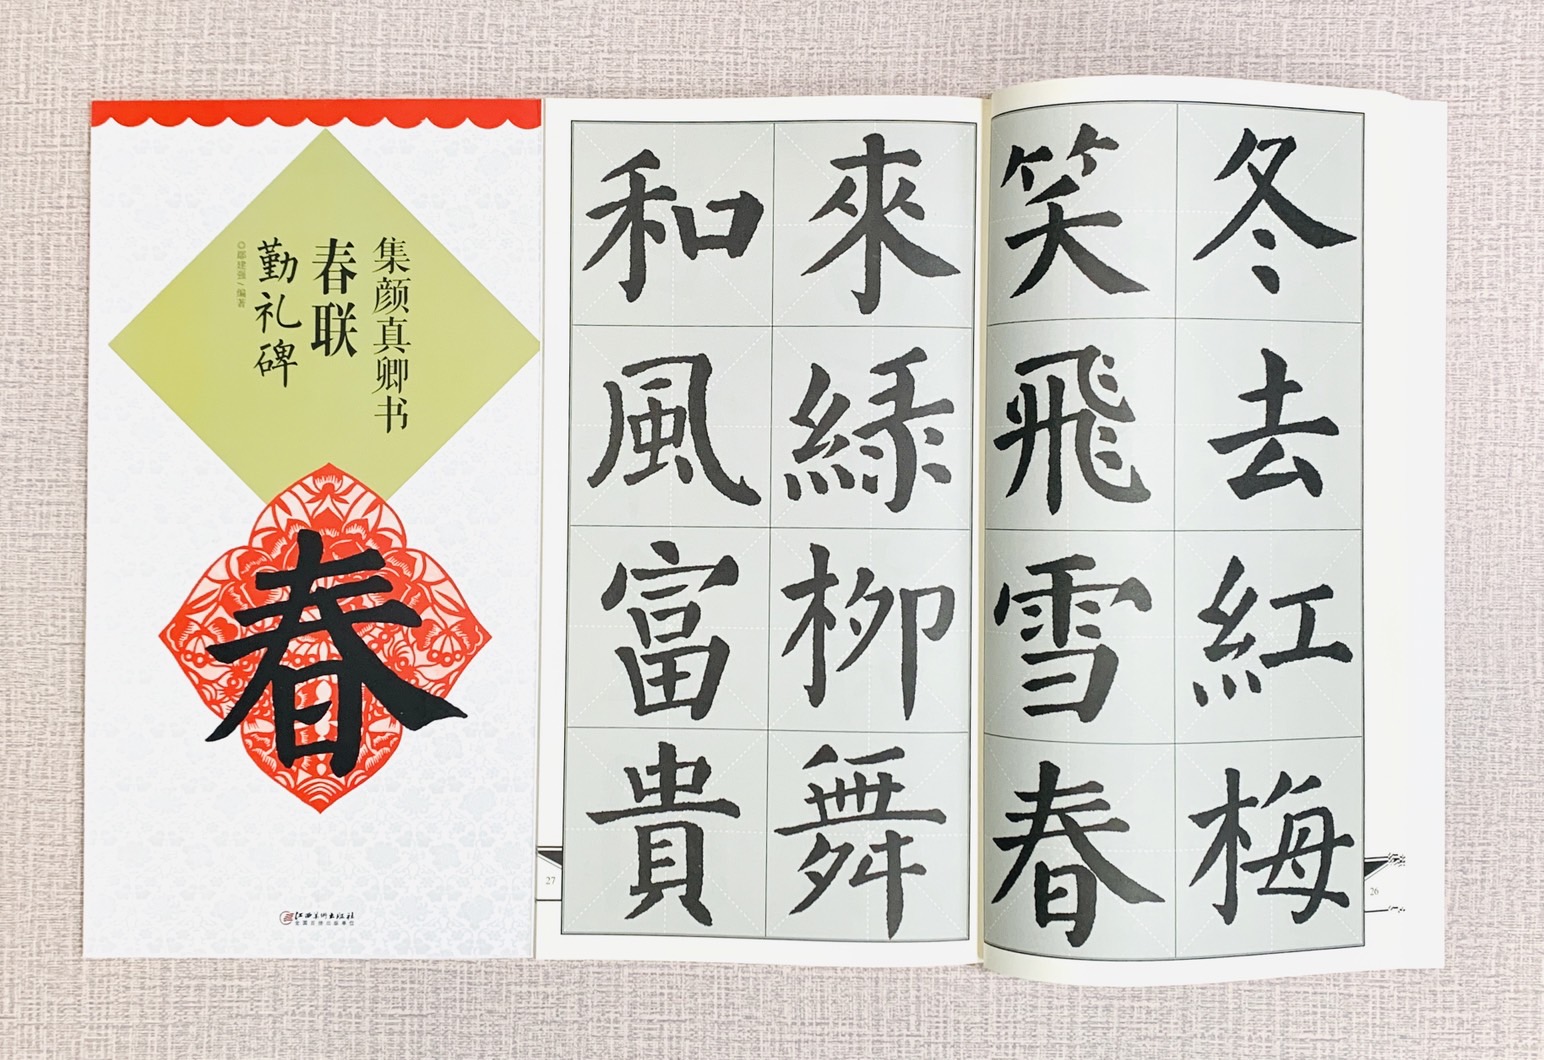 集颜真卿书
春联
勤礼碑
◎鄢建强/编著
春
江西美术出版社
全国百佳出版单位
冬去紅梅
笑飛雪春
來緑柳舞
和風富貴
26
27